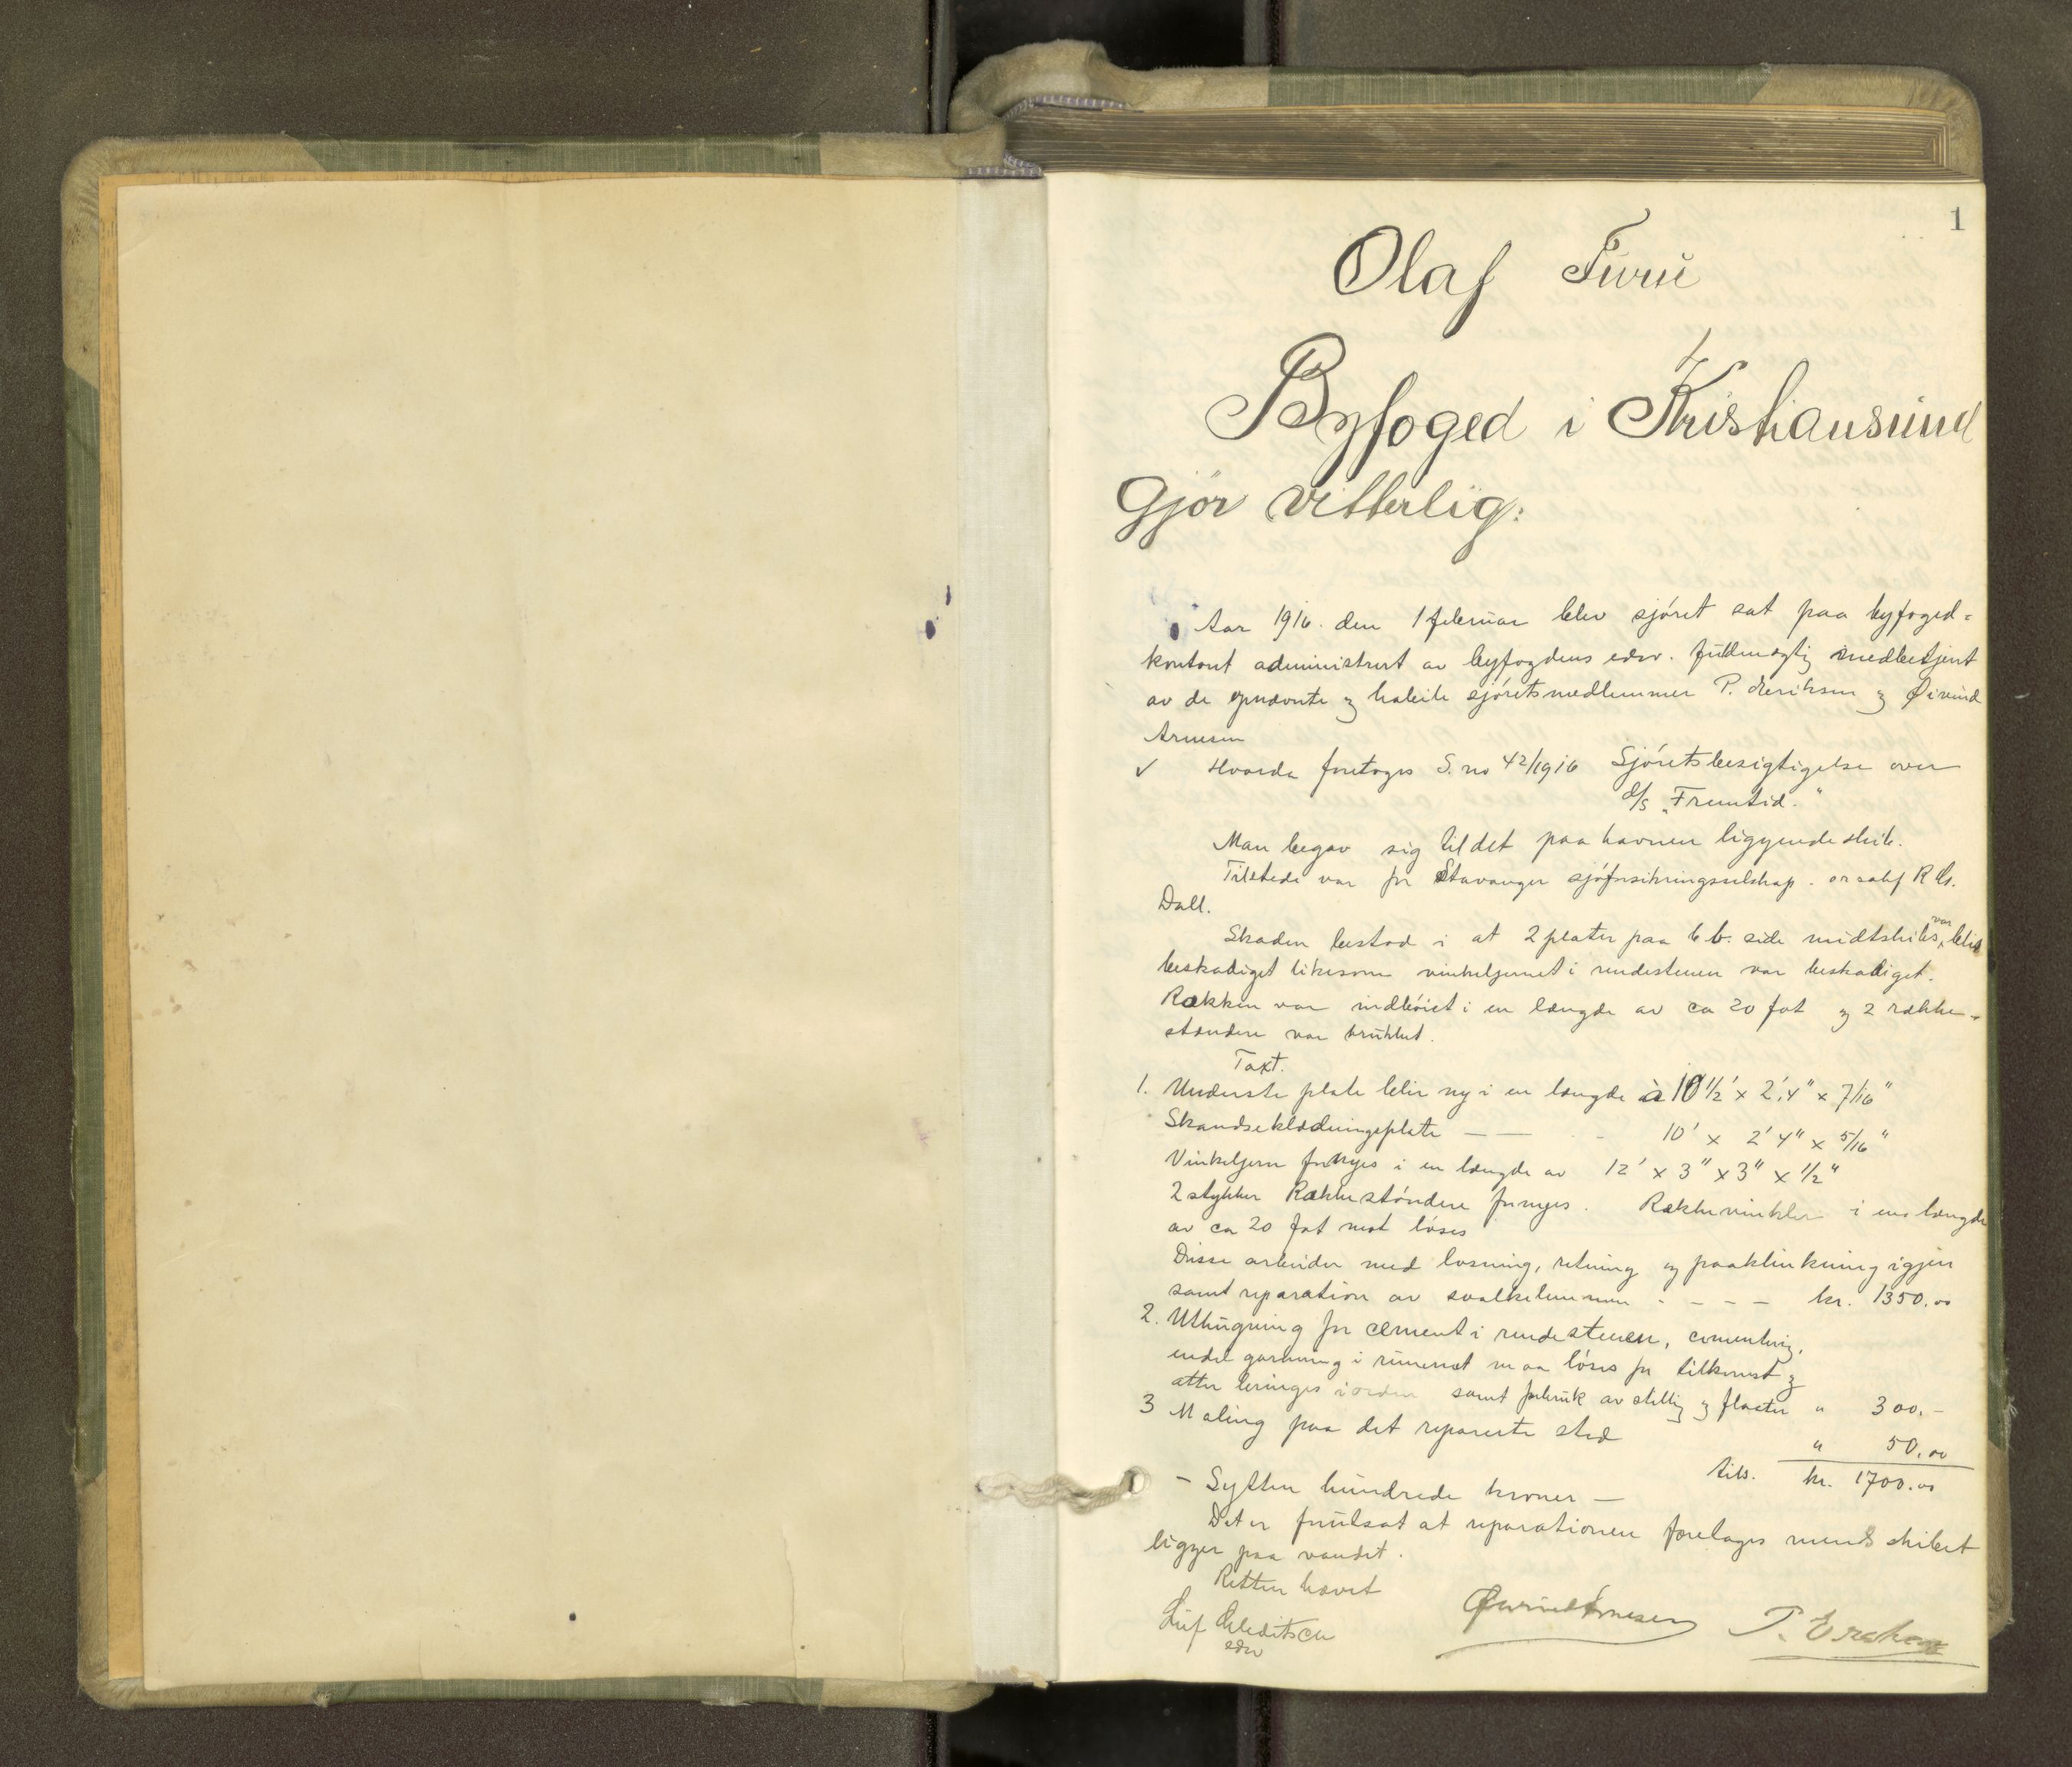 1
Olaf Furu
Byfoged i Kristiansund
Gjör vitterlig:
Aar 1916. den 1 februar blev sjöret sat paa byfoged=
kontoret administrert av byfogdens edsv. fuldmægtig medbetjent
av de opnævnte og habile sjöretsmedlemmer P. Eriksen og Øivind
Arnesen
✓ Hvorda foretoges S. no 42/1916 Sjöretsbesigtigelse over
d/s "Fremtid."
Man begav sig til det paa havnen liggende skib.
Tilstede var for Stavanger sjöforsikringsselskap. or.sakf R Kr.
Dall.
Skaden bestod i at 2 plater paa b b. side midtskibs var blit
beskadiget likesom vinkeljernet i rendestenen var beskadiget.
Rækken var indböiet i en længde av ca 20 fot og 2 række-
stændere var brukket.
Taxt.
1. Underste plate blir ny i en længde à 10 1/2' x 2'.4" x 7/16"
Skandseklædningsplate — — - 10' x 2' 4" x 5/16"
Vinkeljern fornyes i en længde av 12' x 3" x 3" x 1/2"
2 stykker Rækkestöndere fornyes. Rækkevinkler i en længde
av ca 20 fot mot löses
Disse arbeider med løsning, retning og paaklinkning igjen
samt reparation av svalkelemmen - - - - kr. 1350.00
2. Uthugning for cement i rendestenen, cementering,
endel garnering i rummet maa löses for tilkomst og
atter bringes i orden samt forbruk av stilling og flaater " 300.-
3 Maling paa det reparerte sted
" 50.00
tils. kr. 1700.00
- Sytten hundrede kroner -
Det er forutsat at reparationen foretages mens skibet
ligger paa vandet.
Retten hævet
Leif Gleditsch Øivind Arnesen P. Eriksen
edsv